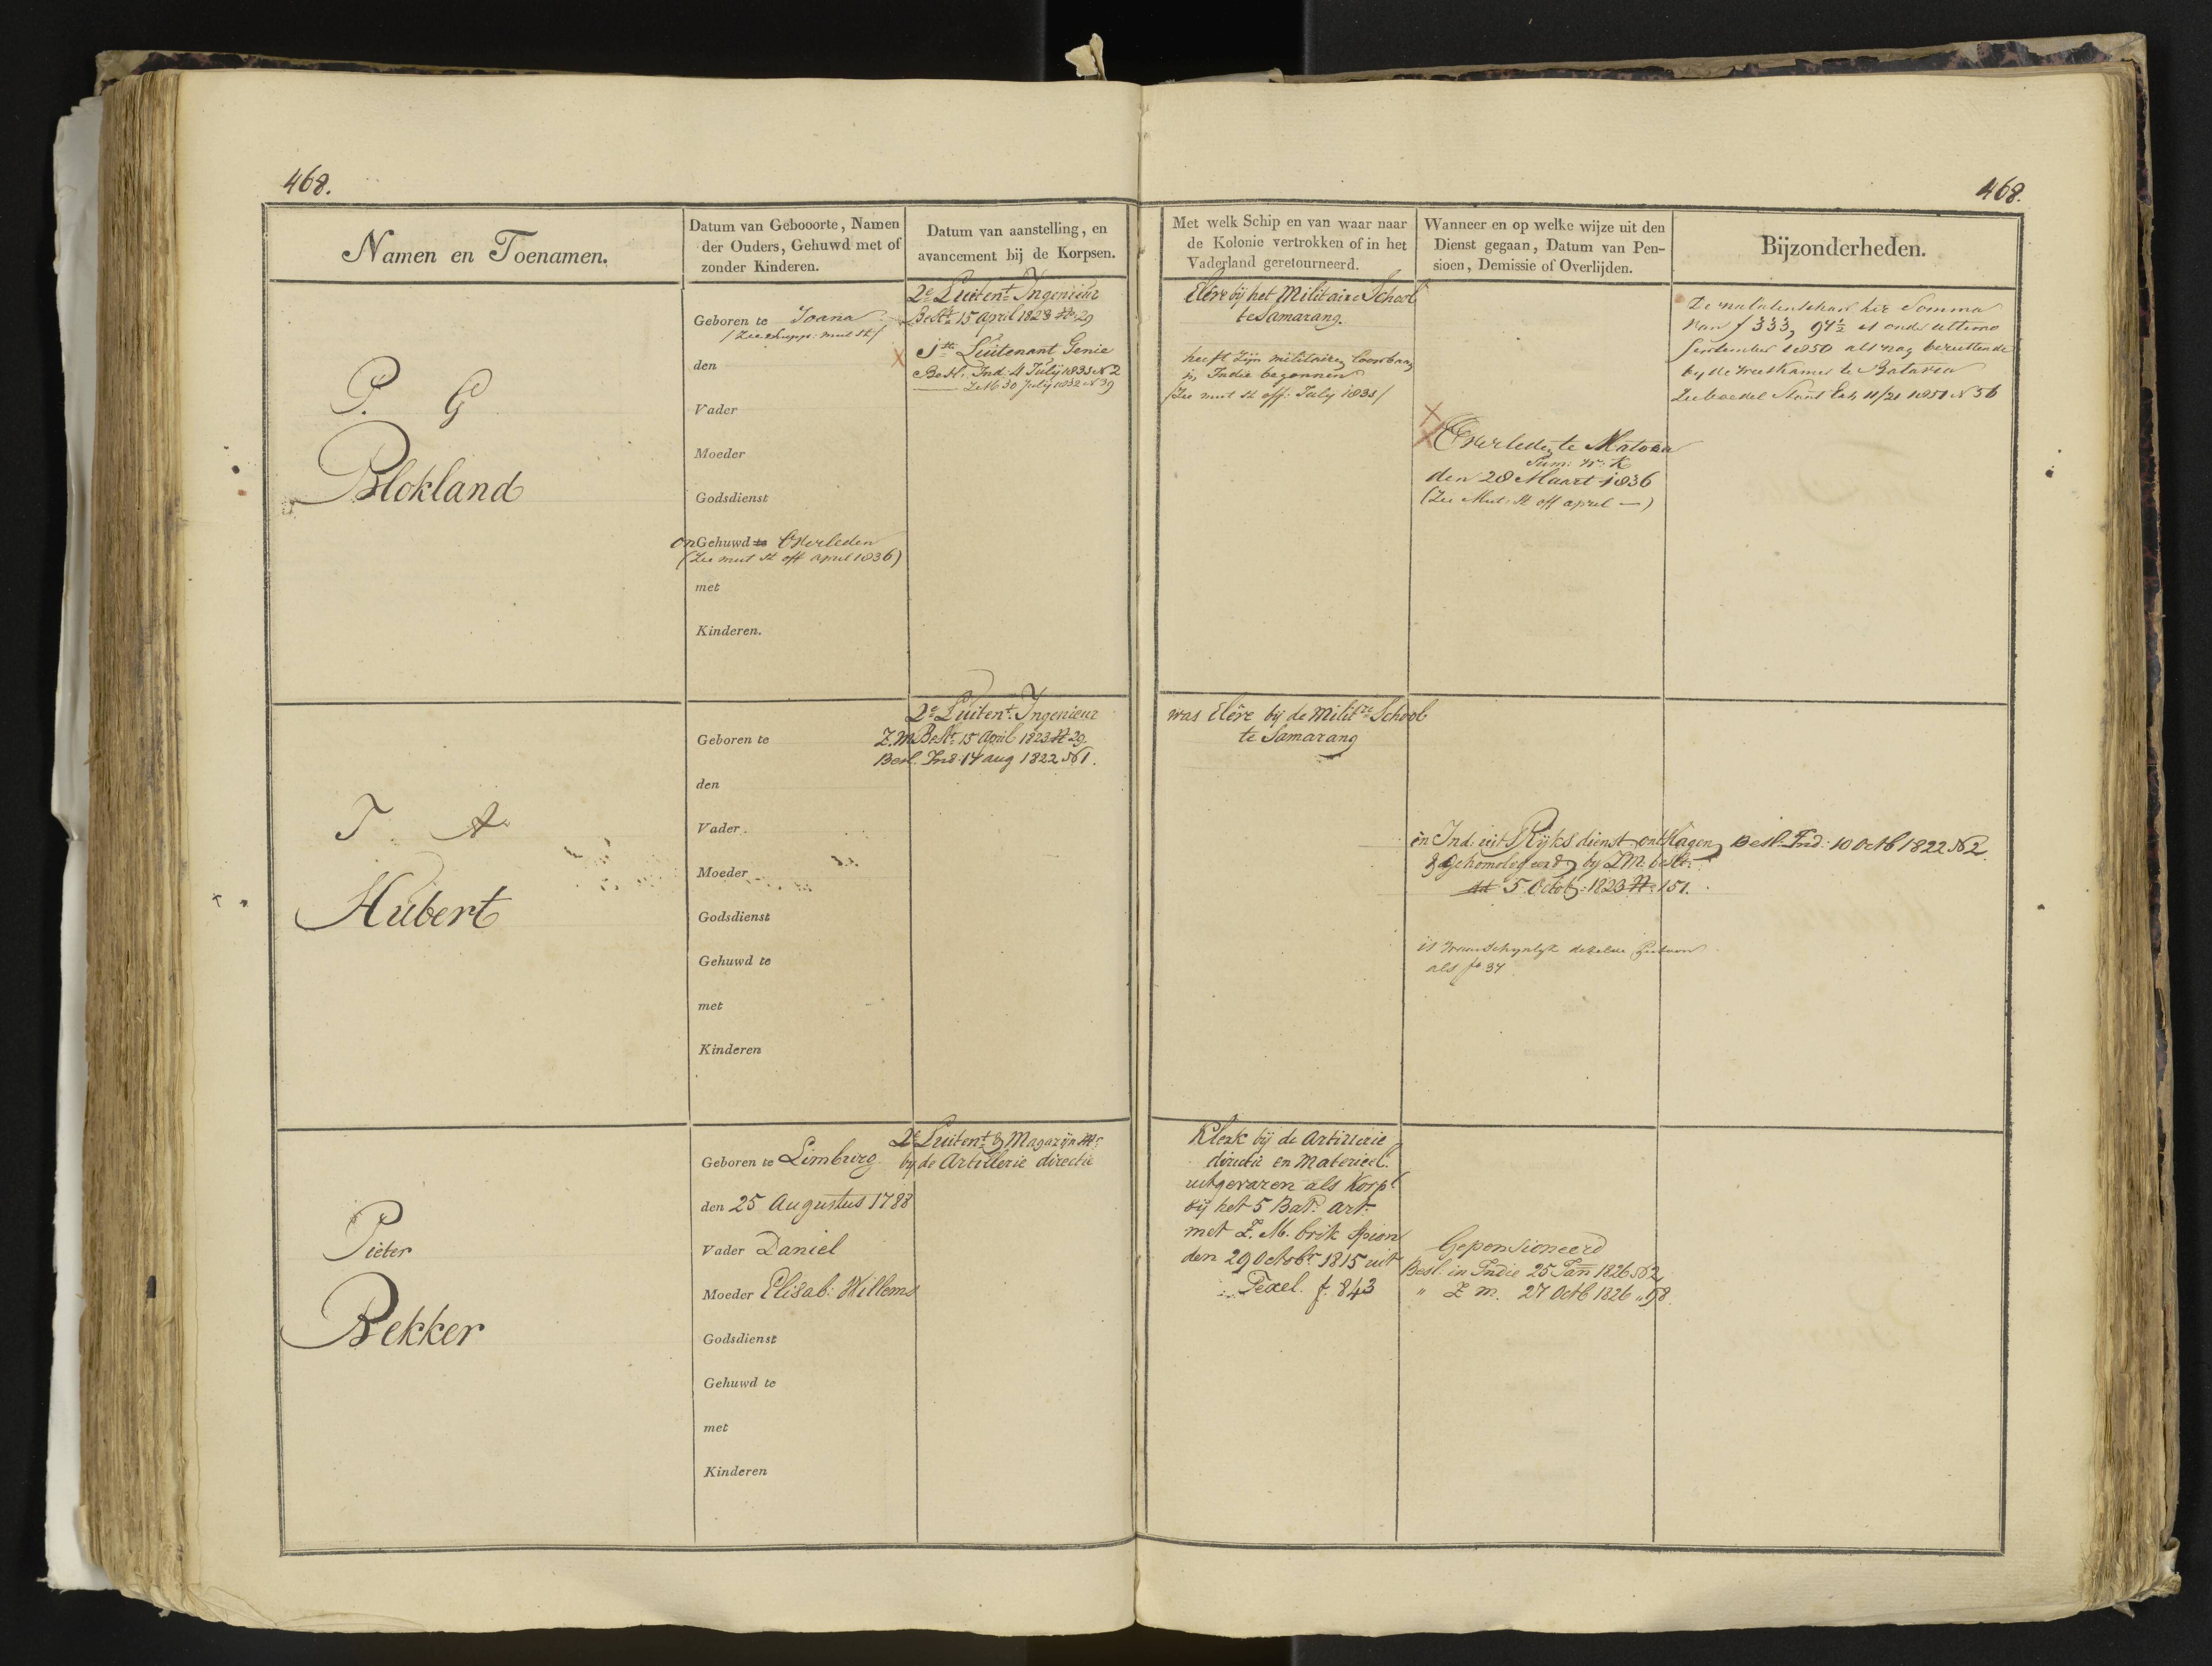 468.
468.
Namen en Toenamen.
Datum van Gebooorte, Namen
der Ouders, Gehuwd met of
zonder Kinderen.
Datum van aanstelling, en
avancement bij de Korpsen.
Met welk Schip en van waar naar
de Kolonie vertrokken of in het
Vaderland geretourneerd.
Wanneer en op welke wijze uit den
Dienst gegaan, Datum van Pen-
sioen, Demissie of Overlijden.
Bijzonderheden.
P. G
Blokland
Geboren te Joana
/ Zie supp: mut st /
den
Vader
Moeder
Godsdienst
onGehuwd te Overleden
(Zie mut st off april 1836)
met
Kinderen.
2e Luitent Ingenieur
Beslt 15 april 1823 No 29
1ste Luitenant Genie
Besl. Ind. 4 Julij 1831 N 2
30 Julij 1832 N 39
Elève bij het Militaire School
te Samarang.
heeft zijn militaire loopbaan
in Indie begonnen
/Zie mut st off: July 1831/
Overleden te Matoea
Sum: W: K
den 28 Maart 1836
(Zie Mut: St off april —)
De nalatenschap hie Somma
van f 333, 97½ is onder ultimo
September 1850 als nog berustende
by de Weeskamer te Batavia
Zie boedel Staat Exh 11/21 1851 N 56
J. A
Hubert
Geboren te
den
Vader
Moeder
Godsdienst
Gehuwd te
met
Kinderen
2e Luitent. Ingenieur
Z.M Beslt 15 April 1823 No 29
Besl. Ind. 14 aug 1822 No 1.
was Elève bij de Militre School
te Samarang
in Ind. uit S Rijks dienst ontslagen Besl. Ind: 10 octb 1822 No 2
gehomologeerd by Z.M. beslt
5 Octob: 1823 No 151.
is waarschynlyk dezelve Persoon
als fo 34
Pieter
Bekker
Geboren te Limburg
den 25 Augustus 1788
Vader Daniel
Moeder Elisab: Willems
Godsdienst
Gehuwd te
met
Kinderen
2e Luitent & Magazijn Mr
by de Artillerie directie
Klerk bij de Artillerie
directie en Materieel.
uitgevaren als Korpl
bij het 5 Batn Art:
met Z. M. brik Spion
den 29 Octobr 1815 uit
Texel. f. 843
Gepensioneerd
Besl. in Indie 25 Jan 1826 No 2
" Z m. 27 Octb 1826 " 98.